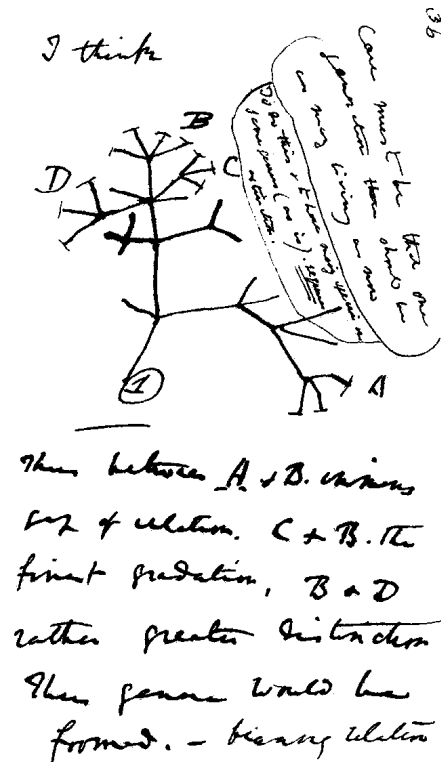 36
I think
Case must be that one
generation then should be
as many living as now
To do this & to have many species in
same genus (as is). requires
extinction.
B
D
C
A
1
Thus between A + B. immens
gap of relation. C + B. the
finest gradation, B + D
rather greater distinction
Thus genera would be
formed. – bearing relation